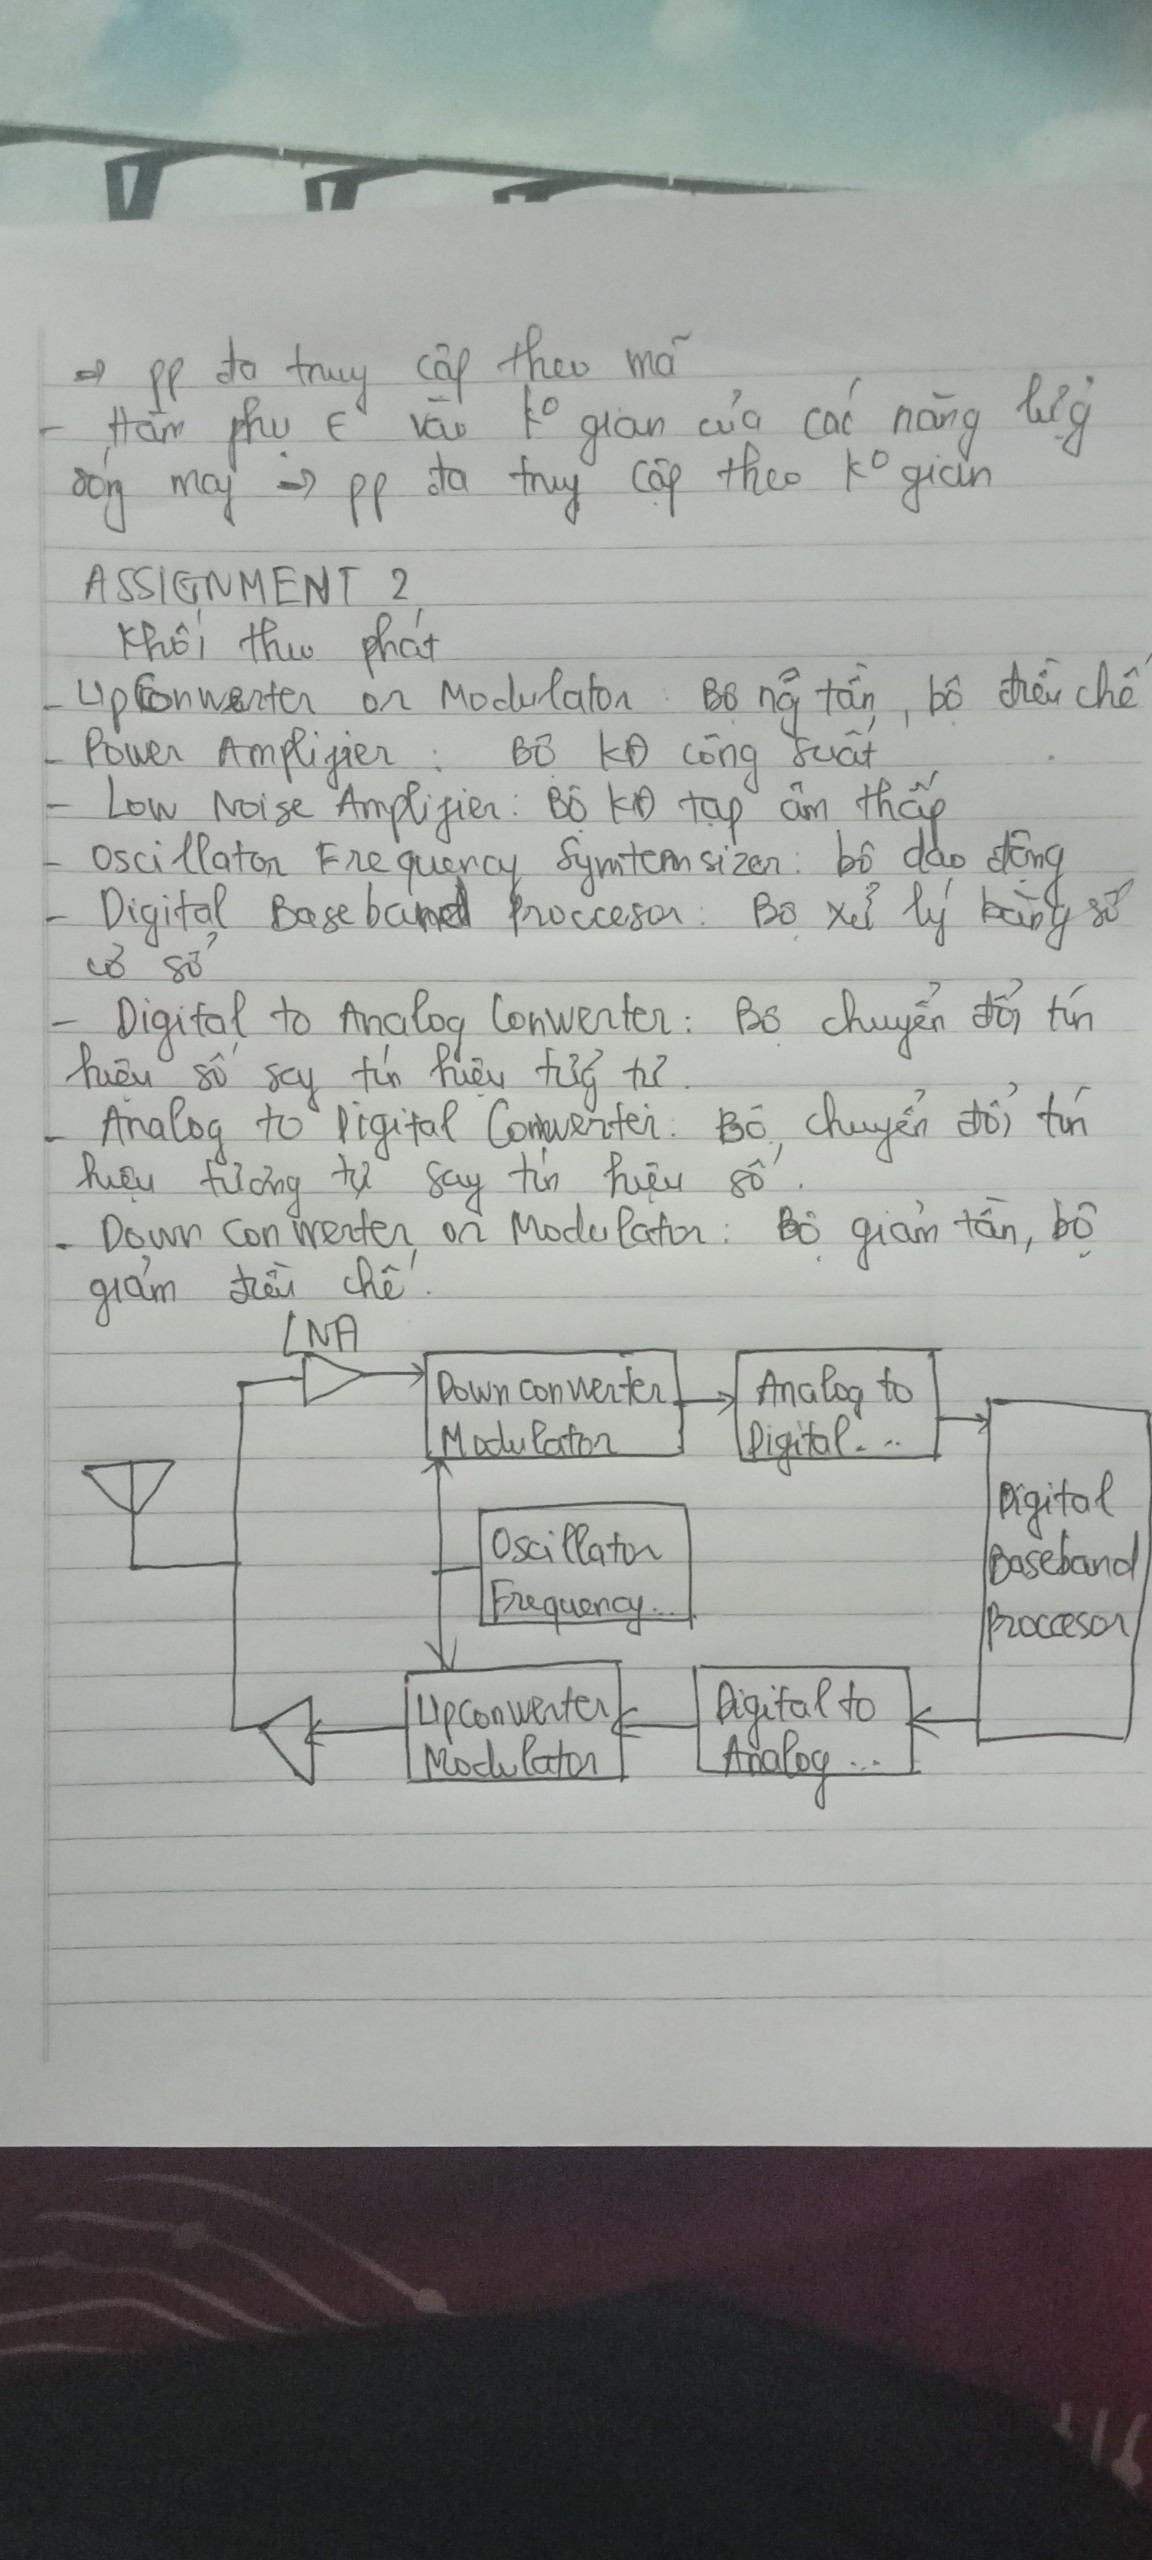 => pp đa truy cập theo mã
- Hàm phụ ∈ vào kº gian của các năng lượng
sóng mag -> pp đa truy cập theo kº gian
ASSIGNMENT 2
Khối thu phát
- Upconwerter or Modulator: Bộ nâng tần, bộ điều chế
- Power Amplifier: Bộ KĐ công suất
- Low Noise Amplifier: Bộ KĐ tạp âm thấp
- Oscillator Frequency Symtemsizer: bộ dao động
- Digital Baseband Proccesor: Bộ xử lý băng số
cơ sở
- Digital to Analog Converter: Bộ chuyển đổi tín
hiệu số say tín hiệu tương tự.
- Analog to Digital Converter: Bộ chuyển đổi tín
hiệu tương tự say tín hiệu số.
- Down converter or Modulator: Bộ giảm tần, bộ
giảm điều chế.
LNA
Down converter
Modulator
Analog to
Digital...
Digital
Baseband
Proccesor
Oscillator
Frequency...
Upconwerter
Modulator
Digital to
Analog...